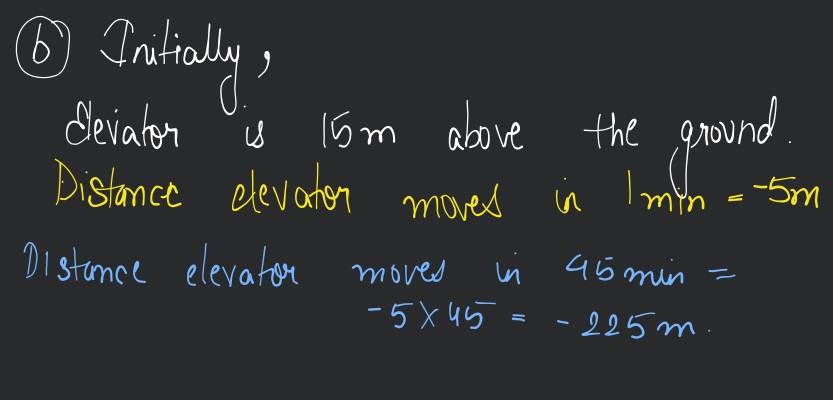 (b) Initially,
Elevator is 15m above the ground.
Distance elevator moves in 1min = -5m
Distance elevator moves in 45min =
-5 × 45 = -225m.